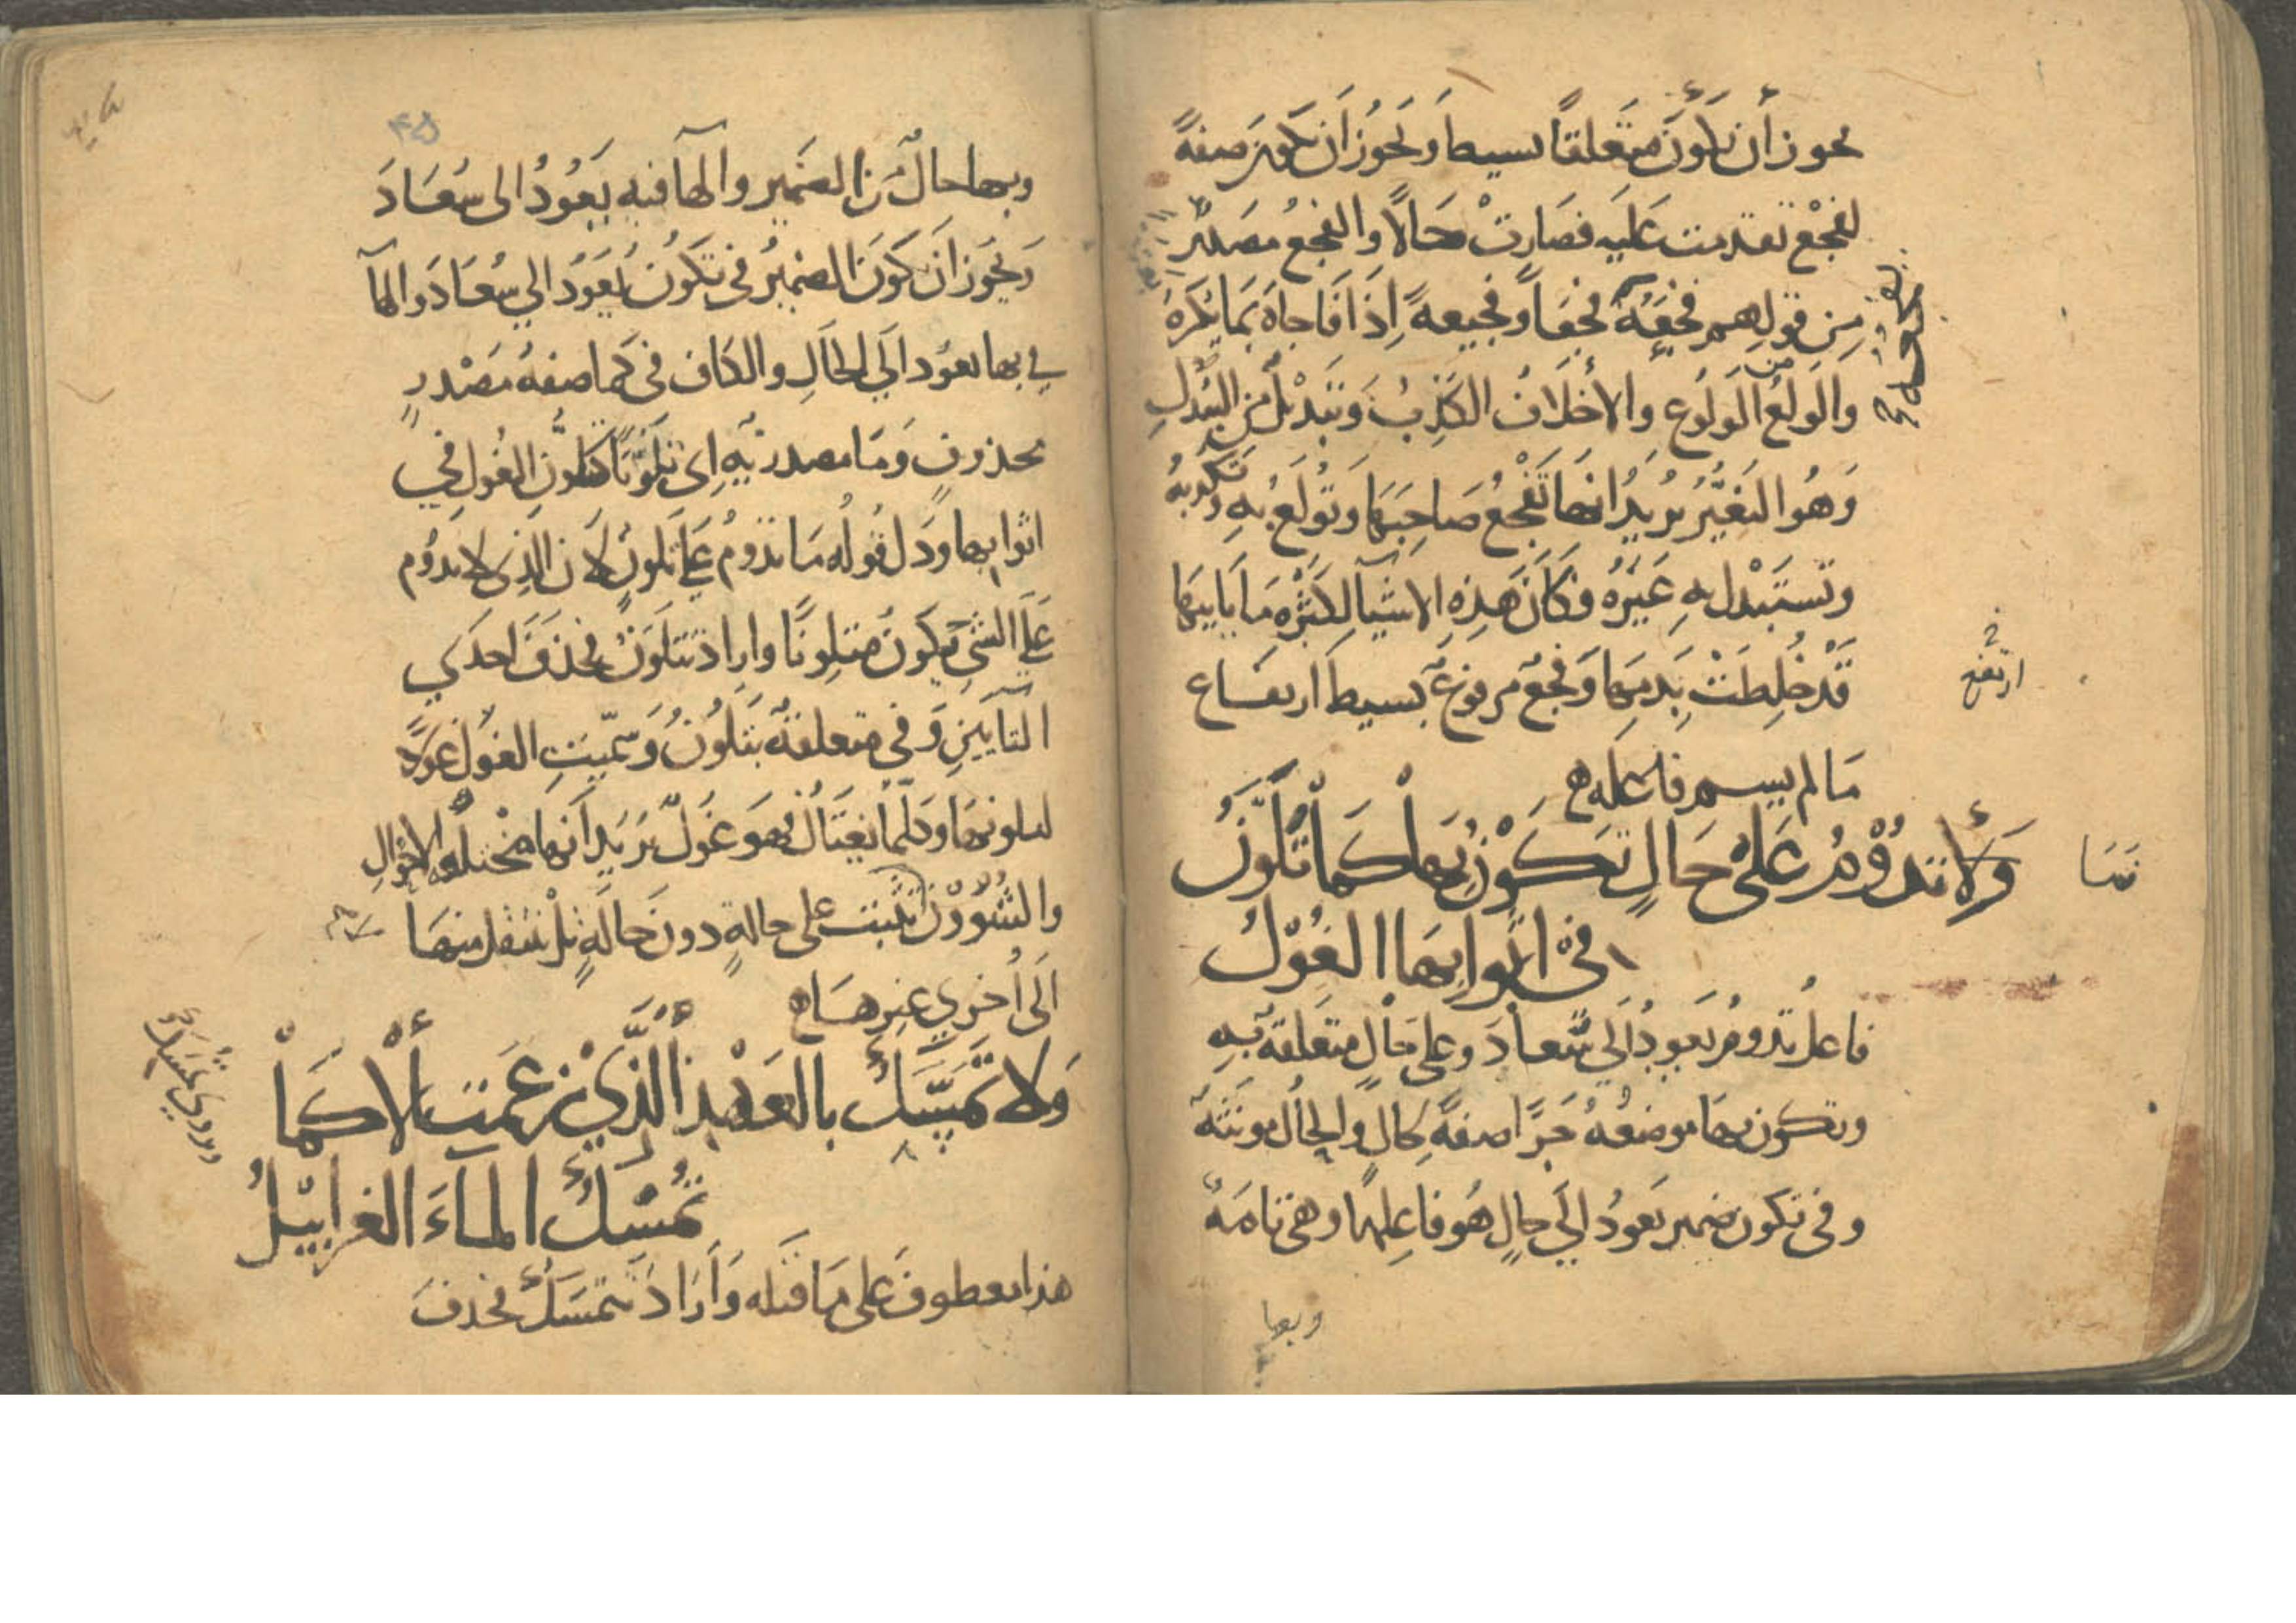 يجوز أن تكون متعلقا بسيط ويجوز أن تكون صفة
لفجع تقدمت عليه فصارت حالا والفجع مصدر
من قولهم فجعه فجعا وفجيعة إذا فاجاه بما يكره
والولع من الولوع والأخلاف الكذب وتبديل من التبدل
وهو التغير يريد انها تفجع صاحبها وتولع به وتكذبه
وتستبدل به غيره وكأن هذه الاشيآ لكثرة ما ياتيها
قد خلطت بدمها وفجع مرفوع بسيط ارتفاع
ارتفع
ما لم يسم فاعله
فما
ولا تدوم على حال تكون بها كما تلون
في اثوابها الغول
فاعل تدوم يعود الي سعاد وعلى حال متعلقة به
وتكون بها موضعه جرا صفة لحال والحال مونثة
وفي تكون ضمير يعود الي حال هو فاعلها وهي تامة
وبها
٤٥
وبها حال من الضمير والهآ فيه يعود الى سعاد
ويجوز ان يكون الضمير في تكون يعود الي سعاد والهآ
في بها تعود الي الحال والكاف في كما صفة مصدر
محذوف وما مصدرية اي تلونا كتلون الغول في
اثوابها ودل قوله ما تدوم على تلون لان الذي لا يدوم
على الشي يكون متلونا واراد تتلون فحذف احدي
التآيين وفي متعلقة بتلون وسميت الغول غولا
لتلونها وكلما يغتال فهو غول يريد انها مختلفة الاحوال
والشؤون لا تثبت على حالة دون حالة بل تنتقل منها
الى أخري غيرها
ولا تمسك بالعهد الذي زعمت الا كما
ويروي تمسك
تمسك الماء الغرابيل
هذا معطوف على ما قبله وأراد تتمسك فحذف